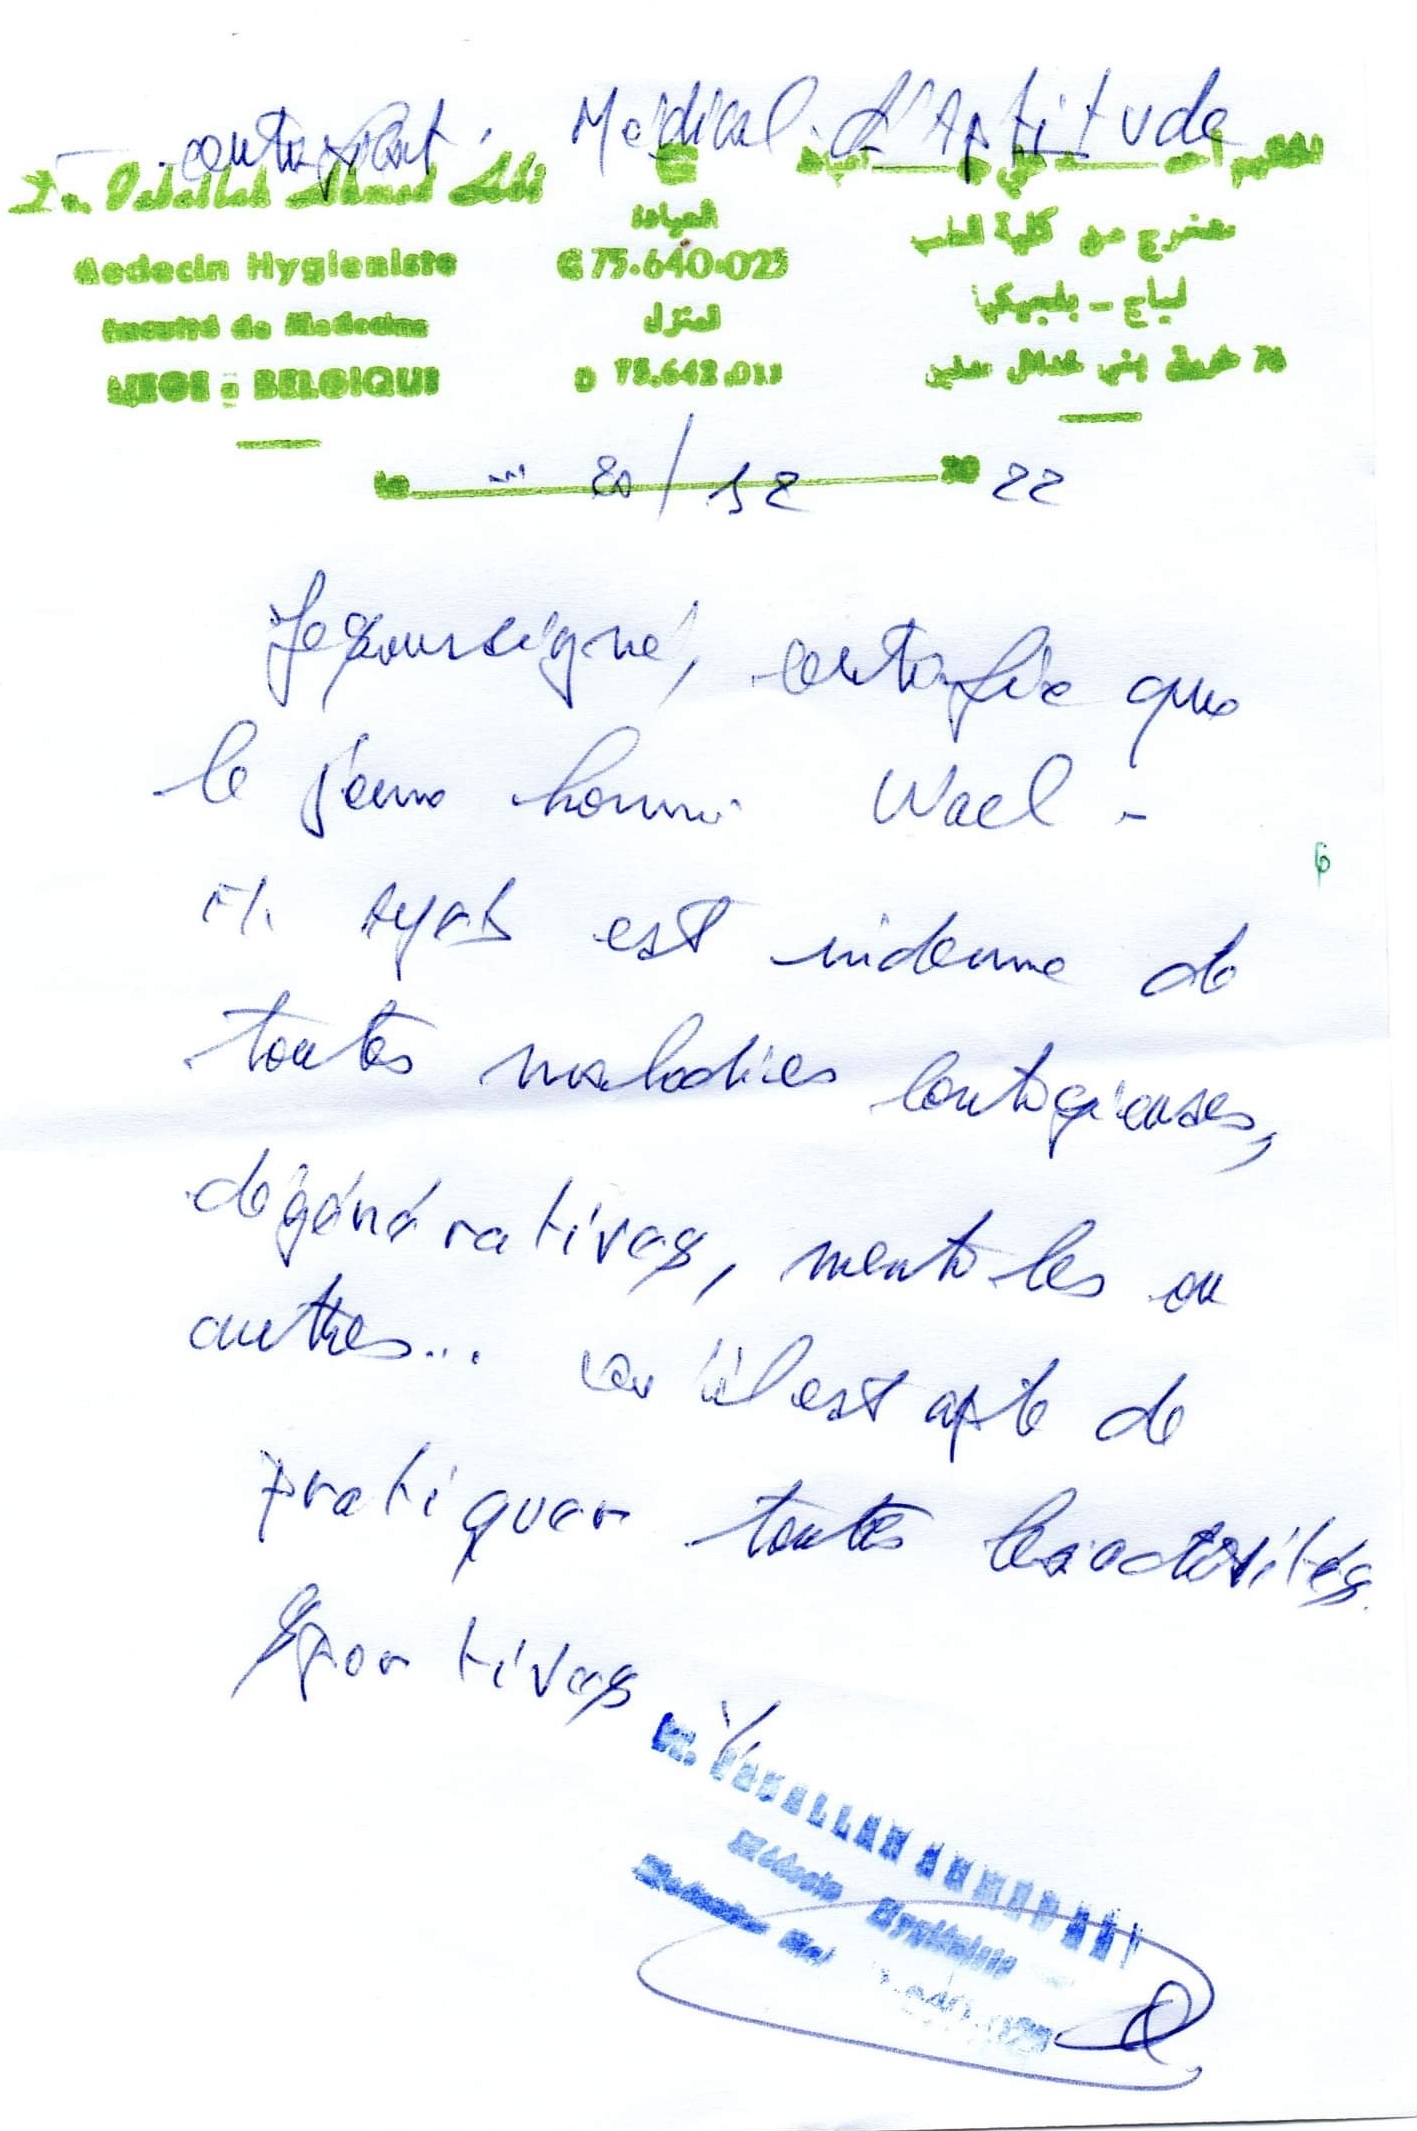 certificat Médical d'Aptitude
Dr. Ahmed
Medecin Hygieniste
Faculté de Medecine
LIEGE - BELGIQUE
العيادة
75.640.025
المنزل
D 75.642.011
متخرج من كلية الطب
لياج - بلجيكيا
le 20/12 20 22
Je soussigné, certifie que
le jeune homme Wael -
est indemne de
toutes maladies contagieuses,
dégénératives, mentales ou
autres... qu'il est apte de
pratiquer toutes les activités
sportives
Dr. AHMED
Médecin Hygiéniste
6